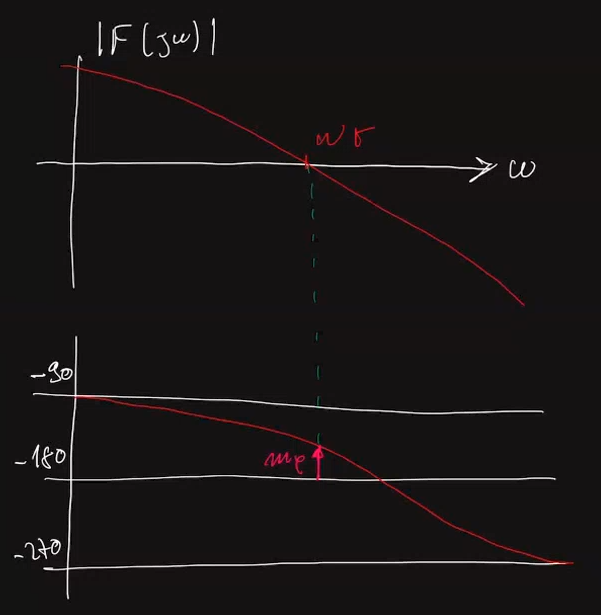 |F(jω)|
ωt
ω
-90
-180
mφ
-270